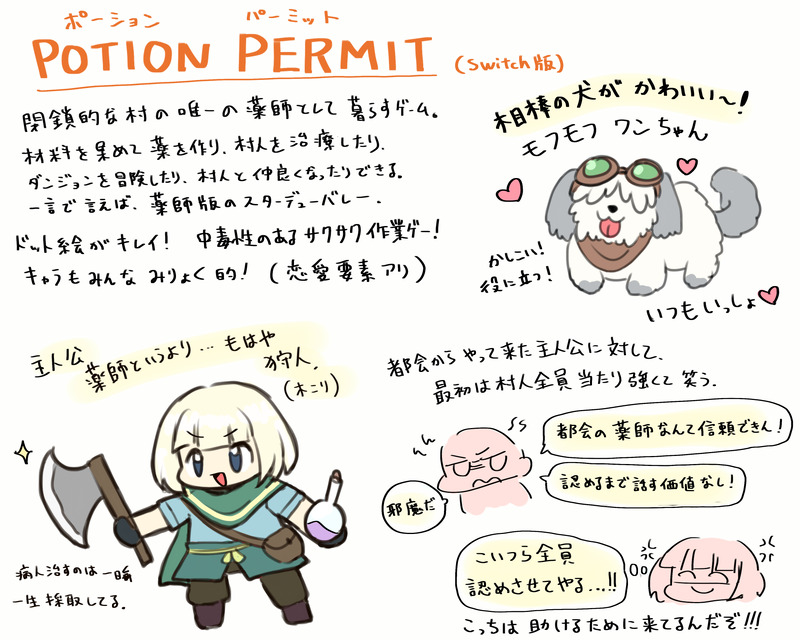 ポーション パーミット
POTION PERMIT (Switch版)
閉鎖的な村の唯一の薬師として暮らすゲーム。
材料を集めて薬を作り、村人を治療したり、
ダンジョンを冒険したり、村人と仲良くなったりできる。
一言で言えば、薬師版のスターデューバレー.
ドット絵がキレイ! 中毒性のあるサクサク作業ゲー!
キャラもみんなみりょく的! (恋愛要素アリ)
相棒の犬がかわいい〜!
モフモフワンちゃん
かしこい!
役に立つ!
いつもいっしょ
主人公
薬師というより…もはや
狩人.
(木こり)
病人治すのは一瞬
一生採取してる.
都会からやって来た主人公に対して、
最初は村人全員当たり強くて笑う.
都会の薬師なんて信頼できん!
認めるまで話す価値なし!
邪魔だ
こいつら全員
認めさせてやる…!!
こっちは助けるために来てるんだぞ!!!